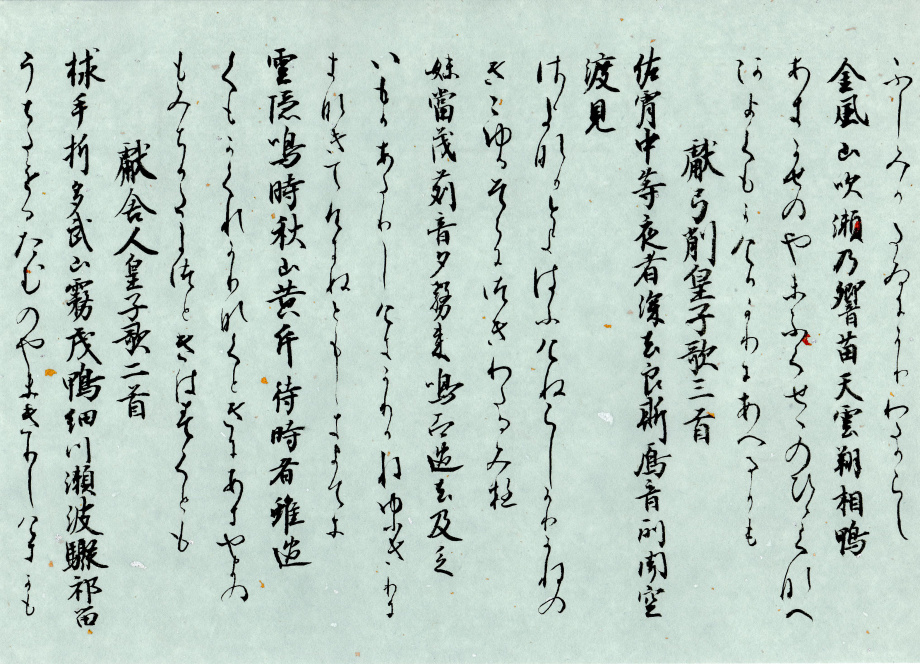 ふしみかたゐにかりわたるらし
金風山吹瀬乃響苗天雲翔相鴨
あきかせのやまふくせゝのひゝくなへ
あまくもかけるかりにあへるかも
獻弓削皇子歌三首
佐宵中等夜者深去良斯鴈音所聞空
渡見
さよなかとよはふけぬらしかりかねの
きこゆるそらにつきわたるみ
妹當茂苅音夕霧来鳴而過去及乏
いもかあたりしけきかりかねゆふきりに
きなきてすきぬともしきまてに
雲隠鳴時秋山黄片待時者雖過
くもかくれかりなくときにあきやまの
もみちかたまつときはすくとも
獻舎人皇子歌二首
捄手折多武山霧茂鴨細川瀬波驟祁留
うちたをるたむのやまきりしけきかも